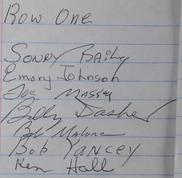 Row One
Sonny Baily
Emory Johnson
Joe Massey
Billy Dasher
Bob Malone
Bob Yancey
Ken Hall